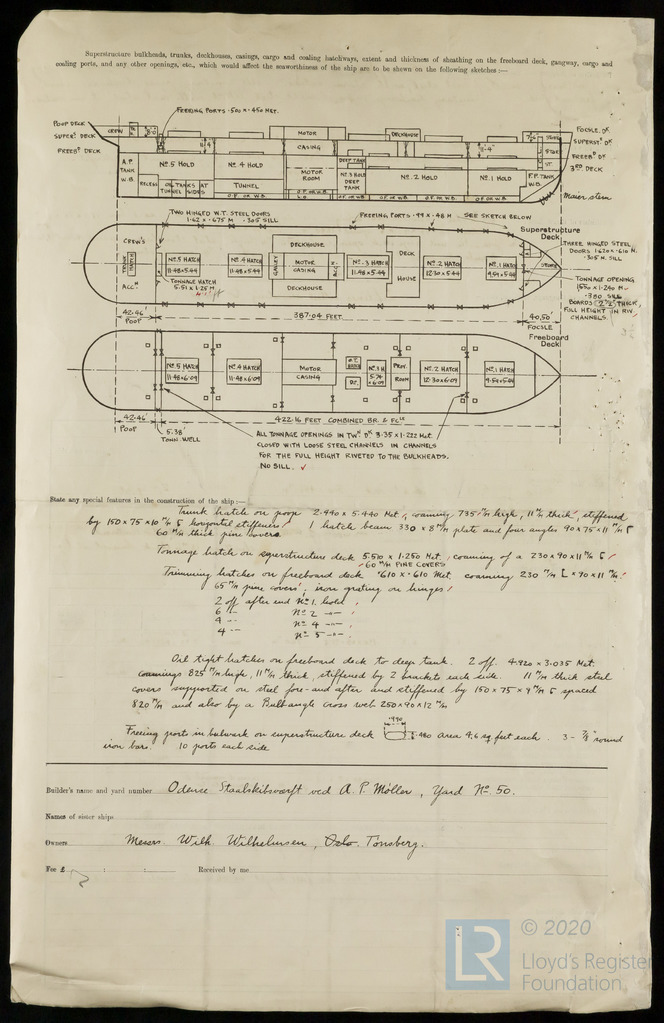 Superstructure bulkheads, trunks, deckhouses, casings, cargo and coaling hatchways, extent and thickness of sheathing on the freeboard deck, gangway, cargo and
coaling ports, and any other openings, etc., which would affect the seaworthiness of the ship are to be shewn on the following sketches:—
FREEING PORTS
POOP DECK
SUPERST. DECK
FREEBD DECK
CREW
MOTOR
CASING
DECKHOUSE
FOCSLE. DK
SUPERST. DK
FREEBD DK
3RD DECK
STORE
ST.
A.P. TANK W.B.
No. 5 HOLD
No. 4 HOLD
MOTOR ROOM
DEEP TANK
No. 3 HOLD DEEP TANK
No. 2 HOLD
No. 1 HOLD
F.P. TANK W.B.
RECESS
OIL TANKS AT TUNNEL SIDES
TUNNEL
O.F. OR W.B.
Maier stem
TWO HINGED W.T. STEEL DOORS
1.62 × .675 M .305 SILL
FREEING PORTS .99 × .48 M. SEE SKETCH BELOW
Superstructure Deck
THREE HINGED STEEL
DOORS 1.620×.610 M.
.305 M. SILL
CREW'S
ACCN
TRUNK HATCH
No. 5 HATCH
11.48×5.44
No. 4 HATCH
11.48×5.44
GALLEY
DECKHOUSE
MOTOR CASING
DECKHOUSE
No. 3 HATCH
11.48×5.44
DECK HOUSE
No. 2 HATCH
12.30×5.44
No. 1 HATCH
9.54×5.44
STORE
TONNAGE HATCH
5.51 × 1.25 M
TONNAGE OPENING
.380 SILL
BOARDS 2½" THICK
FULL HEIGHT IN RIV.
CHANNELS.
42.46'
POOP
387.04 FEET.
40.50'
FOCSLE
Freeboard Deck
No. 5 HATCH
11.48×6.09
No. 4 HATCH
11.48×6.09
MOTOR
CASING
No. 3 H
5.74 × 6.09
PROV. ROOM
No. 2 HATCH
12.30×6.09
No. 1 HATCH
9.54×5.44
42.46'
POOP
5.38'
TONN. WELL
422.16 FEET COMBINED BR. & FCLE
ALL TONNAGE OPENINGS IN TWN DK 3.35 × 1.222 Met.
CLOSED WITH LOOSE STEEL CHANNELS IN CHANNELS
FOR THE FULL HEIGHT RIVETED TO THE BULKHEADS.
NO SILL. ✓
State any special features in the construction of the ship:—
Trunk hatch on poop 2.440 × 5.440 Met., coaming 735 m/m high, 11 m/m thick, stiffened
by 150 × 75 × 10 m/m horizontal stiffeners. 1 hatch beam 330 × 8 m/m plate and four angles 90 × 75 × 11 m/m
60 m/m thick pine covers
Tonnage hatch on superstructure deck 5.510 × 1.250 Met., coaming of a 230 × 90 × 11 m/m
60 m/m PINE COVERS
Trimming hatches on freeboard deck .610 × .610 Met. coaming 230 m/m × 90 × 11 m/m.
65 m/m pine covers, iron grating on hinges
2 off after end No 1 hold,
6 -- No 2 --
4 -- No 4 --
4 -- No 5 --
Oil tight hatches on freeboard deck to deep tank. 2 off. 4.920 × 3.035 Met.
coamings 825 m/m high, 11 m/m thick, stiffened by 2 brackets each side. 11 m/m thick steel
covers supported on steel fore-and after and stiffened by 150 × 75 × 9 m/m spaced
820 m/m and also by a Bulb angle cross web 250 × 90 × 12 m/m
Freeing ports in bulwark on superstructure deck .990 .480 area 4.6 sq. feet each. 3 – ⅞" round
iron bars. 10 ports each side
Builder's name and yard number Odense Staalskibsværft ved A. P. Møller, Yard No. 50.
Names of sister ships
Owners Messrs. Wilh. Wilhelmsen, Oslo. Tonsberg.
Fee £ : : Received by me
LR
© 2020
Lloyd's Register
Foundation